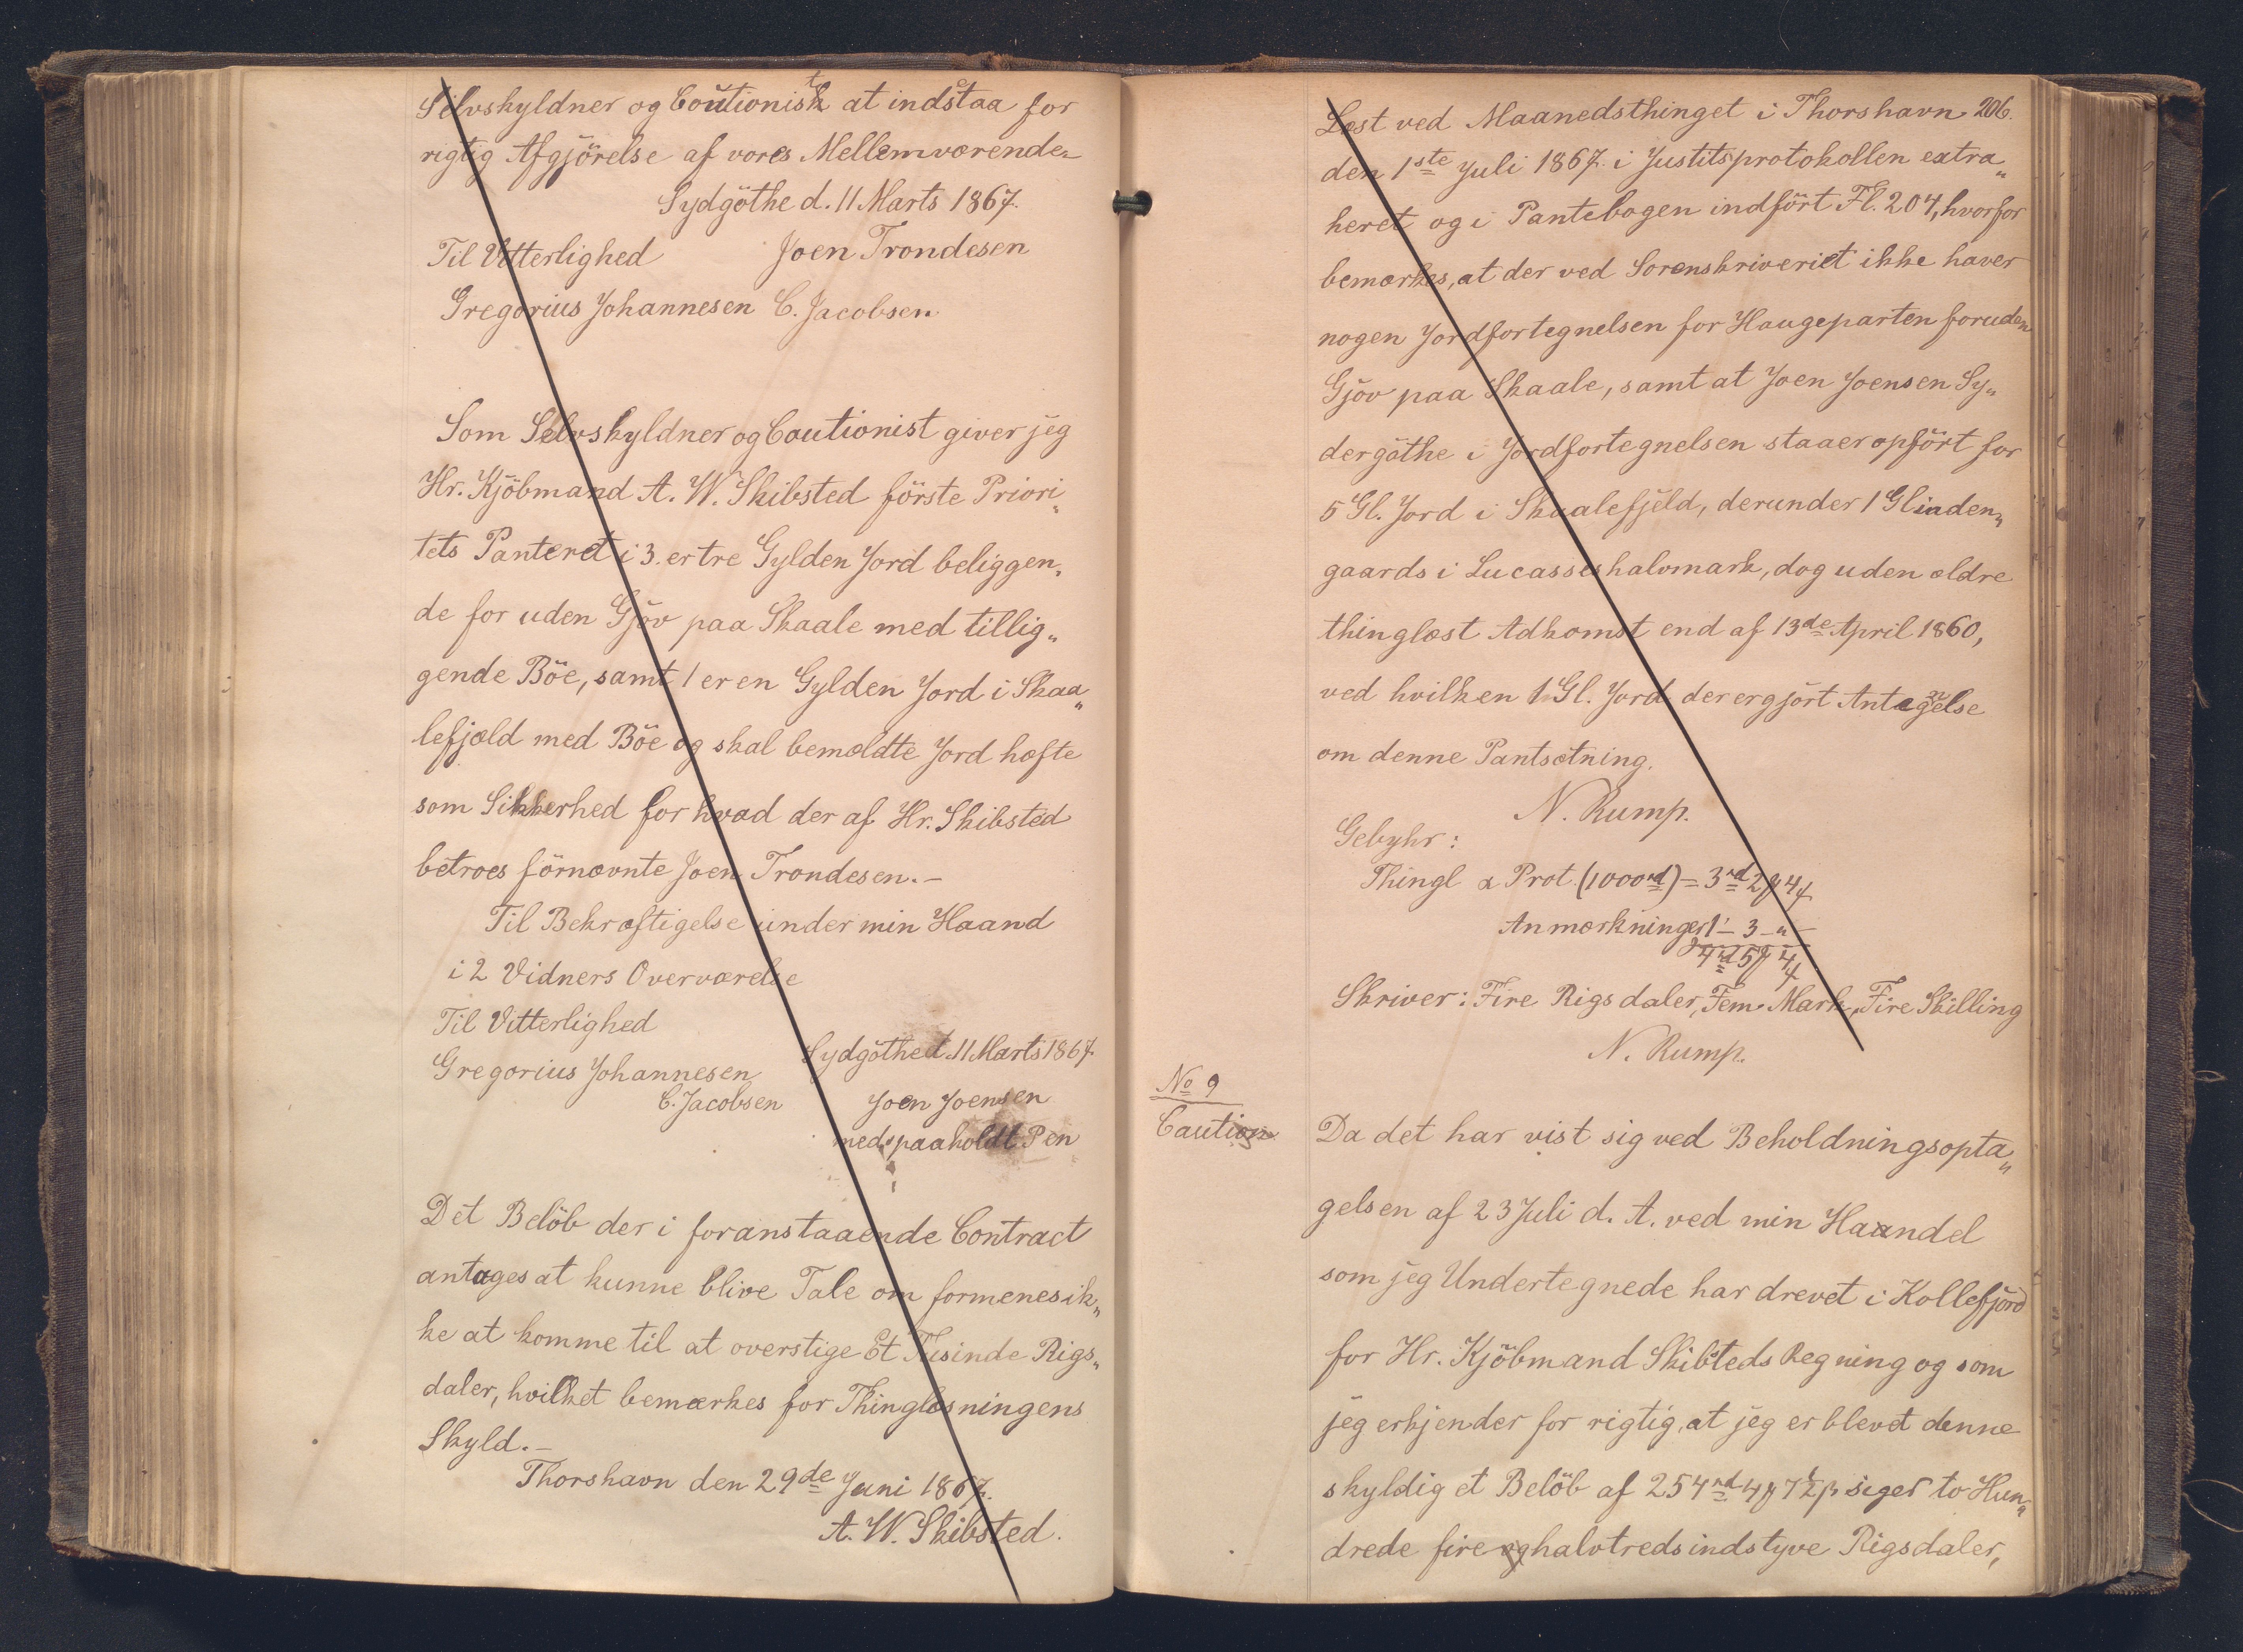 Selvskyldner og Coutionist at indstaa for
rigtig Afgjörelse af vores Mellemværende
Sydgöthe d. 11 Marts 1867.
Til Vitterlighed Joen Trondesen
Gregorius Johannesen C. Jacobsen.
Som Selvskyldner og Coutionist giver jeg
Hr. Kjöbmand A. W. Skibsted förste Priori„
tets Panteret i 3. er tre Gylden Jord beliggen„
de for uden Gjöv paa Skaale med tillig„
gende Böe, samt 1 er en Gylden Jord i Skaa„
lefjæld med Böe og skal bemældte Jord hæfte
som Sikkerhed for hvad der af Hr. Skibsted
betroes förnævnte Joen Trondesen.-
Til Bekræftigelse under min Haand
i 2 Vidners Overværelse
Til Vitterlighed
Sydgöthe d. 11 Marts 1867
Gregorius Johannesen
C. Jacobsen Joen Joensen
med paaholdt Pen
Det Belöb der i foranstaaende Contract
antages at kunne blive Tale om formenes ik„
ke at komme til at overstige Et Tusinde Rigs„
daler, hvilket bemærkes for Thinglæsningens
Skyld.-
Thorshavn den 29de Juni 1867.
A. W. Skibsted.
Læst ved Maanedsthinget i Thorshavn 206.
den 1ste Juli 1867. i Justitsprotokollen extra„
heret og i Pantebogen indfört Fl. 204, hvorfor
bemærkes, at der ved Sorenskriveriet ikke haver
nogen Jordfortegnelsen for Haugeparten foruden
Gjöv paa Skaale, samt at Joen Joensen Sy„
dergöthe i Jordfortegnelsen staaer opfört for
5 Gl. Jord i Skaalefjeld, derunder 1 Gl inden„
gaards i Lucasses halvmark, dog uden ældre
thinglæst Adkomst end af 13de April 1860,
ved hvilken 1 Gl. Jord der er gjört Antegnelse
om denne Pantsætning.
N. Rump.
Gebyhr:
Thingl & Prot (1000rd) = 3rd 2 ꝟ 4 ꞵ
Anmærkninger 1 - 3 - „ -
4rd 5 ꝟ 4 ꞵ
Skriver: Fire Rigsdaler, Fem Mark, Fire Skilling
N. Rump.
No 9
Caution
Da det har vist sig ved Beholdningsopta„
gelsen af 23 Juli d. A. ved min Haandel
som jeg Undertegnede har drevet i Kollefjörd
for Hr. Kjöbmand Skibsteds Regning og som
jeg erkjender for rigtig, at jeg er blevet denne
skyldig et Belöb af 254rd 4 ꝟ 7½ ꞵ siger to Hun„
drede fire og halvtredsindstyve Rigsdaler,